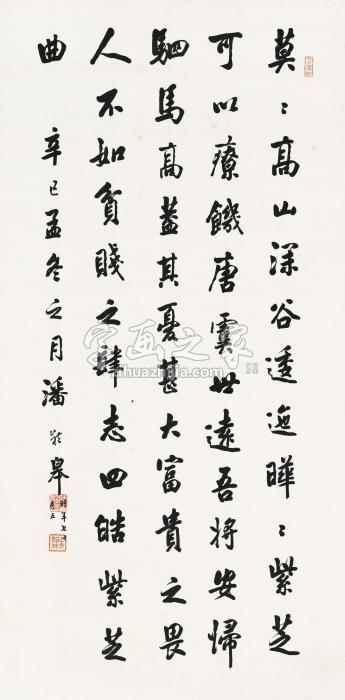 莫〻高山深谷逶迤曄〻紫芝
可以療饑唐虞世遠吾將安歸
駟馬高蓋其憂甚大富貴之畏
人不如貧賤之肆志四皓紫芝
曲 辛巳孟冬之月潘齡皋
時年七十有五
字画之家
zihuazhijia.com